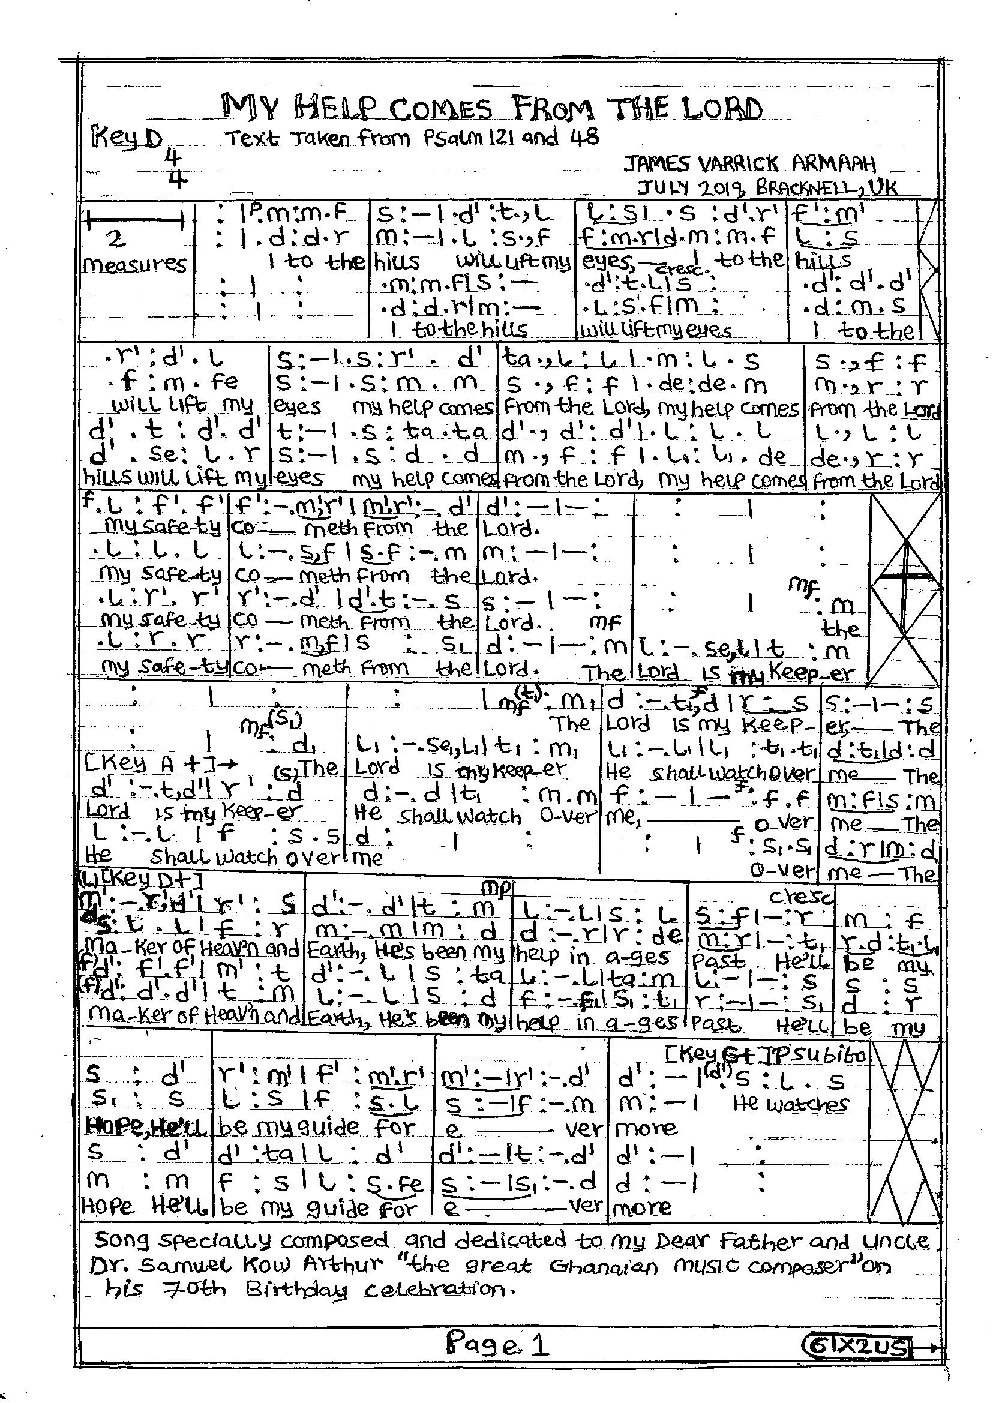 MY HELP COMES FROM THE LORD
Key D
Text Taken from Psalm 121 and 48
4
4
JAMES VARRICK ARMAAH
JULY 2019, BRACKNELL, UK
: |P.m:m.f | s:–|.d':t.,l | l:s|.s:d'.r' | f':m'
2 : |.d:d.r | m:–|.l:s.,f | f:m.r|d.m:m.f | l:s
measures I to the hills will lift my eyes, cresc. I to the hills
: | : .m:m.f|s:– .d':t.l|s: .d':d'.d'
: | : .d:d.r|m:– .l:s.f|m: .d:m.s
I to the hills will lift my eyes I to the
.r':d'.l | s:–|.s:r'.d' | ta.,l:l|.m:l.s | s.,f:f
.f:m.fe | s:–|.s:m.m | s.,f:f|.de:de.m | m.,r:r
will lift my eyes my help comes from the Lord, my help comes from the Lord
d'.t:d'.d' | t:–|.s:ta.ta | d'.,d':d'|.l:l.l | l.,l:l
d'.se:l.r | s:–|.s:d.d | m.,f:f|.l₁:l₁.de | de.,r:r
hills will lift my eyes my help comes from the Lord, my help comes from the Lord
f.l:f'.f' | f':–.m'r'|m'.r':–.d' | d':–|–: | : | :
my safe-ty co— meth from the Lord.
.l:l.l | l:–.s,f|s.f:–.m | m:–|–: | : | :
my safe-ty co— meth from the Lord. mf
.l:r'.r' | r':–.d'|d'.t:–.s | s:–|–: | | :m
my safe-ty co— meth from the Lord. mf the
.l:r.r | r:–.m,f|s :s₁ | d:–|–:m | l:–.se,l|t :m
my safe-ty co— meth from the Lord. The Lord is my Keep-er
: | : | : |mf(t₁):m₁ | d:–.t₁,d|r:–s | s:–|–:s
mf(s₁) The Lord is my Keep-er— The
: | :d₁ | l₁:–.se₁,l₁|t₁:m₁ | l₁:–.l₁|l₁:t₁.t₁ | d:t₁|d:d
[Key A+]→ (s₁)The Lord is my Keep-er He shall watch over me— The
d':–.t,d'|r':d | d:–.d|t₁ :m.m | f:–|–f:f.f | m:f|s:m
Lord is my Keep-er He shall watch O-ver me,— over me— The
l:–.l|f :s.s | d: | : | : | f:s₁.s₁ | d:r|m:d
He shall watch over me O-ver me— The
[Key D+] mp cresc
m':–.r',d'|r':s | d':–.d'|t:m | l:–.l|s:l | s:f|–:r | m:f
t.l|f:r | m:–.m|m:d | d:–.r|r:de | m:r|–:t₁ | r.d:t₁.l₁
Ma-Ker of Heav'n and Earth, He's been my help in a-ges Past He'll be my
f'.f'|m':t | d':–.l|s:ta | l:–.l|ta:m | l:–|–:s | s:s
d'.d'|t:m | l:–.l|s:d | f:–.f|s₁:t₁ | r:–|–:s₁ | d:r
Ma-Ker of Heav'n and Earth, He's been my help in a-ges Past He'll be my
[Key G+]P subito
s :d' | r':m'|f':m'.r' | m':–|r':–.d' | d':–|(d')s:l.s
s₁ :s | l:s|f:s.l | s:–|f:–.m | m:–| He watches
Hope, He'll be my guide for e—ver more
s :d' | d':ta|l:d' | d':–|t:–.d' | d':–| :
m :m | f:s|l:s.fe | s:–|s₁:–.d | d:–| :
Hope He'll be my guide for e—ver more
Song specially composed and dedicated to my Dear Father and Uncle
Dr. Samuel Kow Arthur "the great Ghanaian music composer" on
his 70th Birthday celebration.
Page 1
61X2US